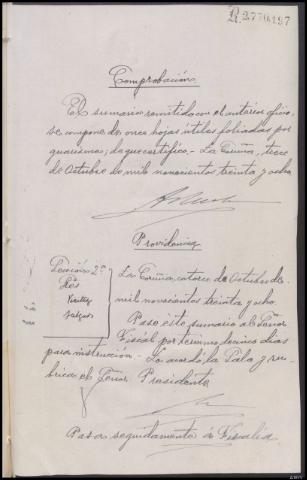 R.2770197
Comprobación
El sumario remitido con el anterior oficio,
se compone de once hojas útiles foliadas por
guarismos; de que certifico.- La Coruña, trece
de Octubre de mil novecientos treinta y ocho.
Providencia
Sección 2ª
Rés
La Coruña, catorce de Octubre de
mil novecientos treinta y ocho.
Salgado
Pase este sumario al Señor
Fiscal por término de cinco días
para instrucción.- Lo acordó la Sala y ru-
brica el Señor Presidente
Pasa seguidamente a Fiscalía